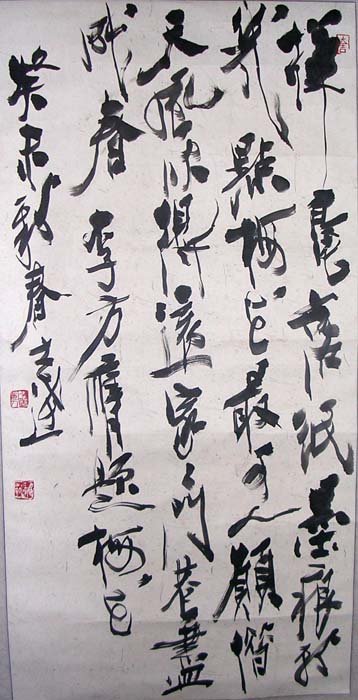 揮毫落紙墨痕新
幾點梅花最可人願借
天風吹得遠家々門巷盡
成春 李方膺題梅花
癸未新春